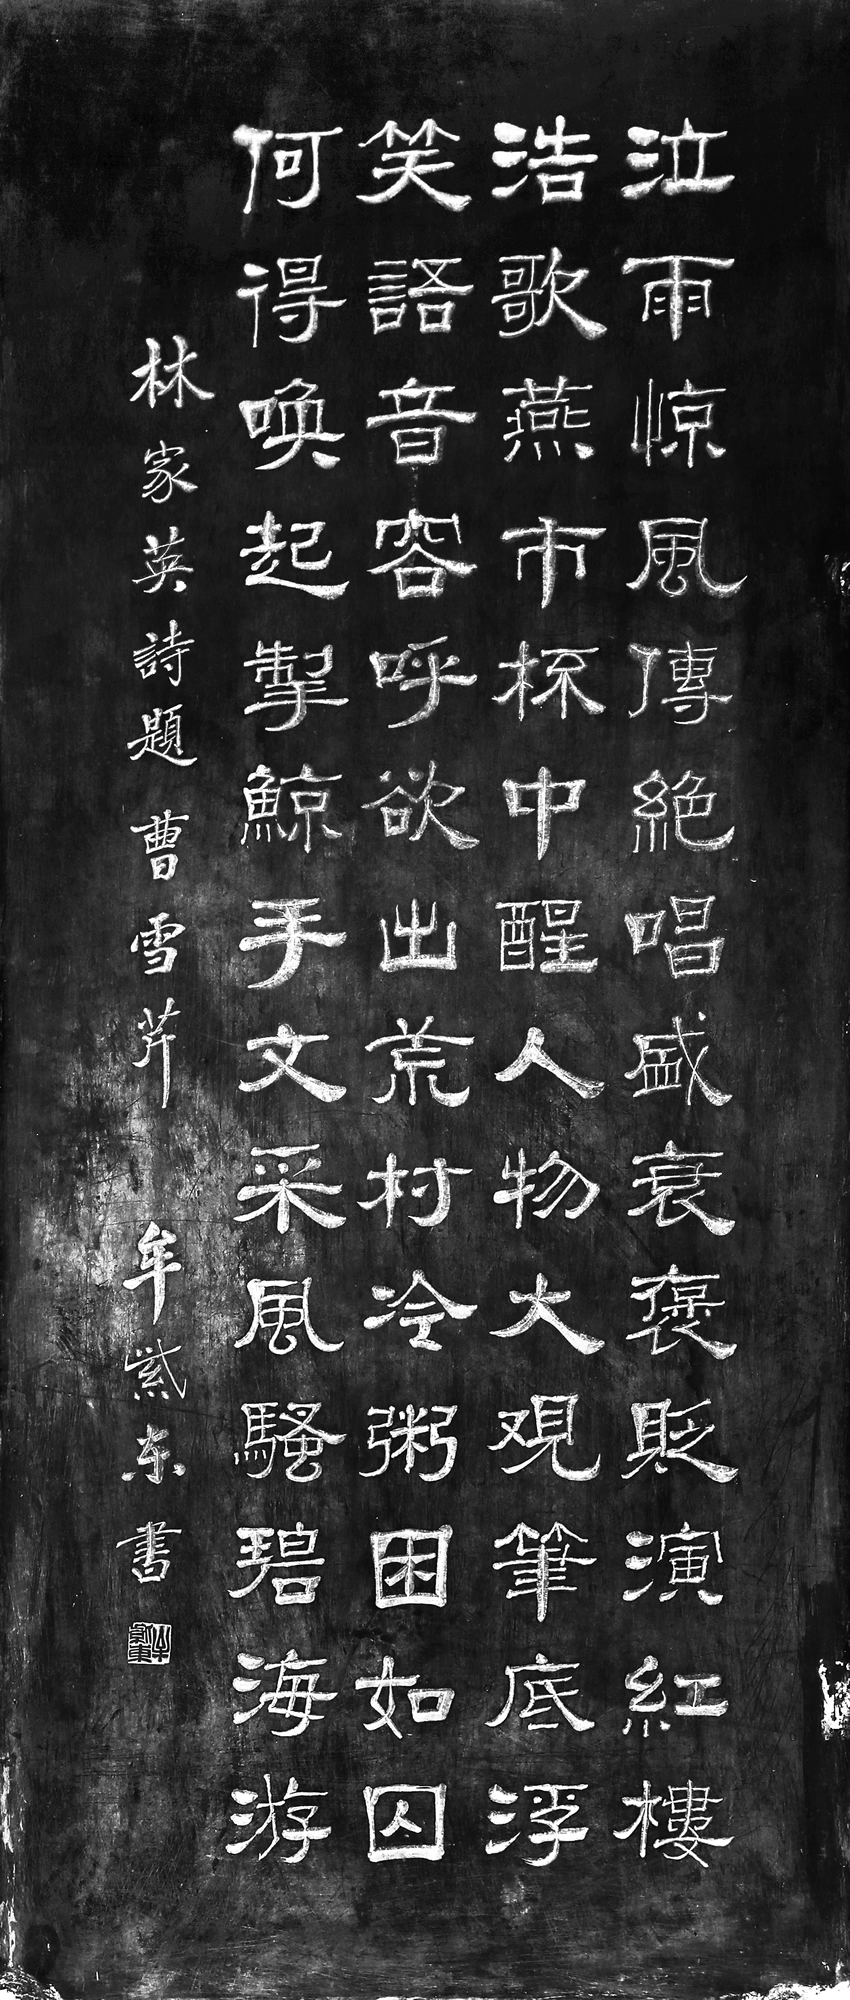 泣雨惊風傳絕唱盛衰褒貶演紅樓
浩歌燕市杯中醒人物大观筆底浮
笑語音容呼欲出荒村冷粥困如囚
何得喚起掣鯨手文采風騷碧海游
林家英詩題曹雪芹 牟紫东書